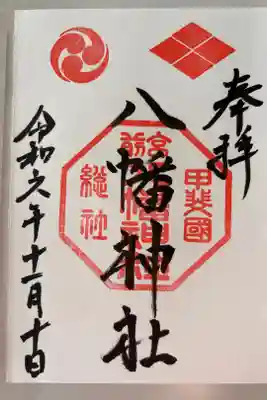 奉拝
甲斐國
宮前
八幡神社
総社
令和六年十一月十日